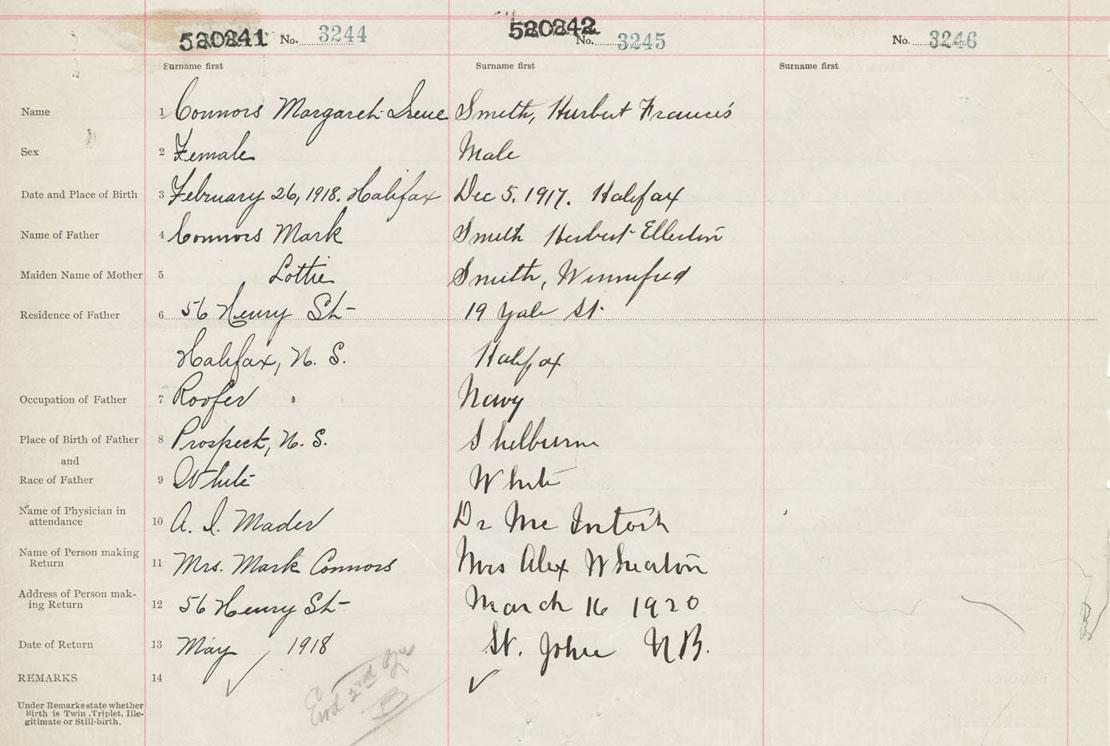 520241 No. 3244 520242 No. 3245 No. 3246
Surname first Surname first Surname first
Name 1 Connors Margaret Irene Smith, Herbert Francis
Sex 2 Female Male
Date and Place of Birth 3 February 26, 1918. Halifax Dec 5. 1917. Halifax
Name of Father 4 Connors Mark Smith Herbert Ellerton
Maiden Name of Mother 5 Lottie Smith, Winnifred
Residence of Father 6 56 Henry St 19 Yale St.
Halifax, N. S. Halifax
Occupation of Father 7 Roofer Navy
Place of Birth of Father 8 Prospect, N. S. Shelburne
and
Race of Father 9 White White
Name of Physician in
attendance 10 A. I. Mader Dr Mc Intosh
Name of Person making
Return 11 Mrs. Mark Connors Mrs Alex Wheaton
Address of Person mak-
ing Return 12 56 Henry St March 16 1920
Date of Return 13 May 1918 St. John N.B.
REMARKS 14
Under Remarks state whether
Birth is Twin, Triplet, Ille-
gitimate or Still-birth.
End 2nd
B